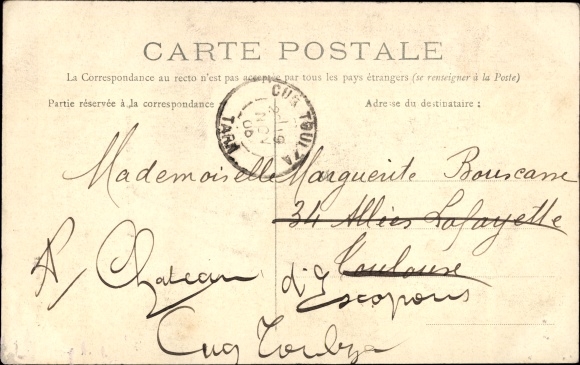 CARTE POSTALE
La Correspondance au recto n'est pas acceptée par tous les pays étrangers (se renseigner à la Poste)
Partie réservée à la correspondance
Adresse du destinataire :
CUQ TOULZA
TARN
Mademoiselle Marguerite Bouscane
34 Allées Lafayette
Toulouse
Chateau d'Escopons
Cuq Toulza